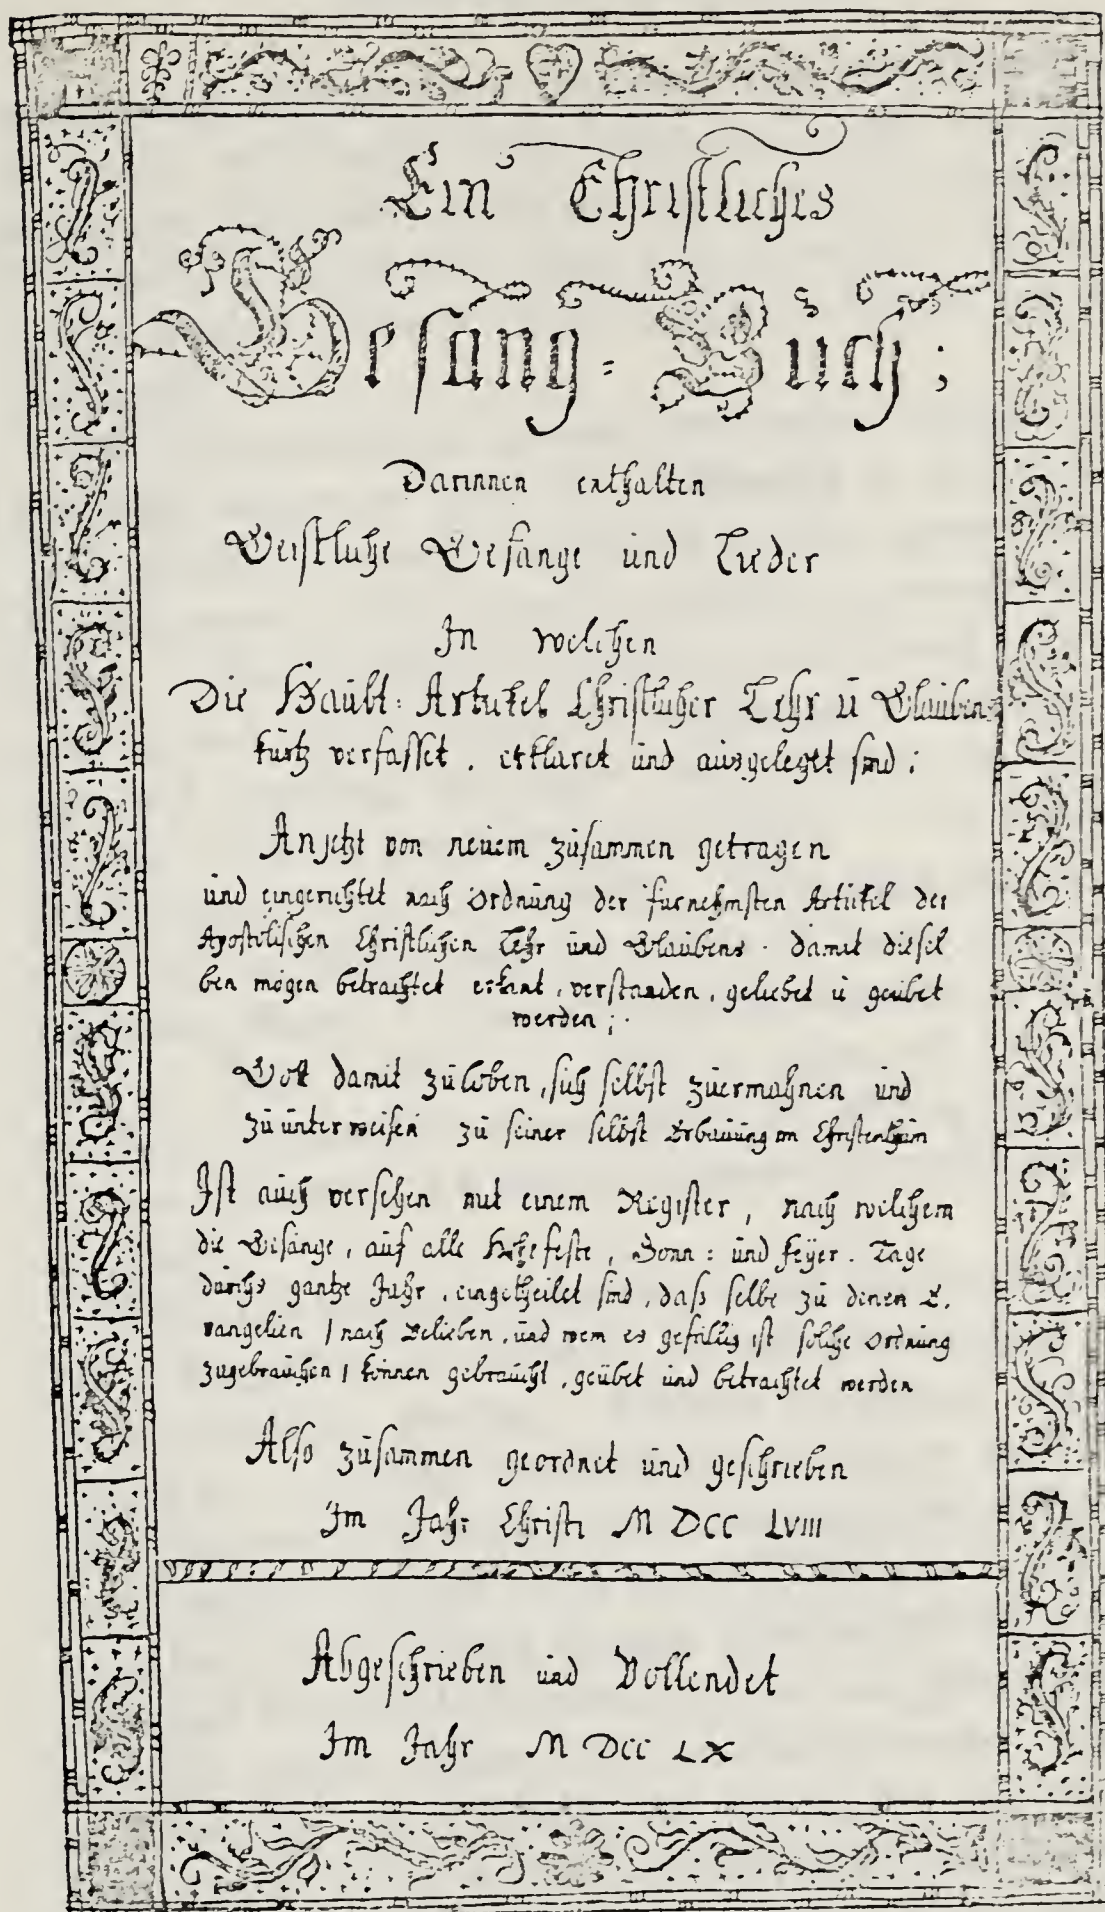 Ein Christliches
Gesang=Buch;
Darinnen enthalten
Geistliche Gesange und Lieder
In welchen
Die Haubt: Artickel Christlicher Lehr ū Glaubens
kurtz verfasset, erklaret und ausgeleget sind;
Anjetzt von neuem zusammen getragen
und eingerichtet nach Ordnung der furnehmsten Artickel der
Apostolischen Christlichen Lehr und Glaubens. damit diesel
ben mogen betrachtet erkant, verstanden, geliebet ū geübet
werden;
Gott damit zuloben, sich selbst zuermahnen und
zu unterweisen zu seiner selbst Erbauung im Christenthum
Ist auch versehen mit einem Register, nach welchem
die Gesänge, auf alle Hohe feste, Sonn: und feyer. Tage
durchs gantze Jahr, eingetheilet sind, dass selbe zu denen E.
vangelien / nach Belieben, und wem es gefällig ist solche Ordnung
zugebrauchen / können gebraucht, geübet und betrachtet werden
Also zusammen geordnet und geschrieben
Im Jahr Christi M DCC LVIII
Abgeschrieben und Vollendet
Im Jahr M DCC LX